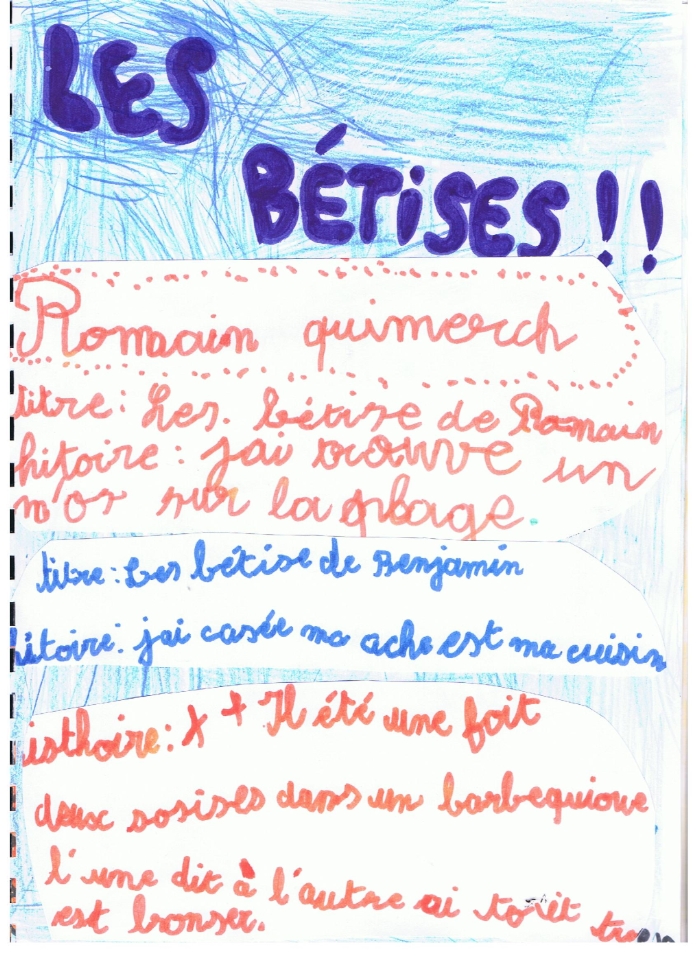 LES
BÉTISES !!
Romain quimerch
titre: Les. bétise de Romain
hitoire: jai trouve un
m'os sur la plage
titre: Les bétise de Benjamin
hitoire: jai casée ma ache est ma cuisin
isthoire: X + Il été une foit
deux sosises dans un barbequioue
l'une dit à l'autre ai
est bronser.